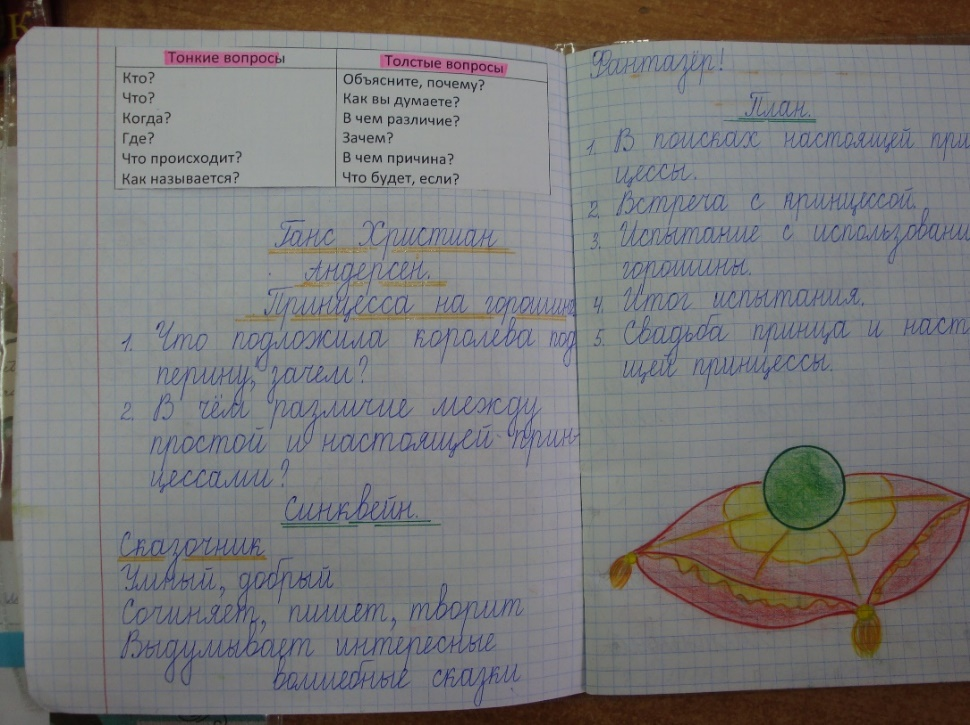 Тонкие вопросы Толстые вопросы
Кто? Объясните, почему?
Что? Как вы думаете?
Когда? В чем различие?
Где? Зачем?
Что происходит? В чем причина?
Как называется? Что будет, если?
Ганс Христиан
Андерсен.
Принцесса на горошине
1. Что подложила королева под
перину, зачем?
2. В чём различие между
простой и настоящей прин-
цессами?
Синквейн.
Сказочник
Умный, добрый
Сочиняет, пишет, творит
Выдумывает интересные
волшебные сказки
Фантазёр!
План.
1. В поисках настоящей прин
цессы.
2. Встреча с принцессой.
3. Испытание с использовани
горошины.
4. Итог испытания.
5. Свадьба принца и наст
щей принцессы.